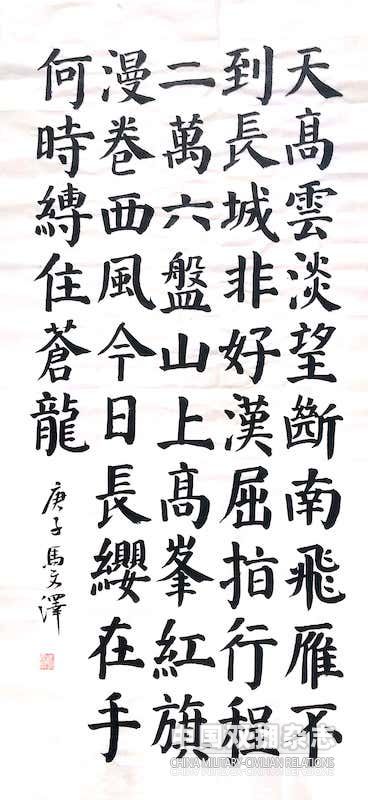 天髙雲淡望斷南飛雁不
到長城非好漢屈指行程
二萬六盤山上髙峯紅旗
漫卷西風今日長纓在手
何時縛住蒼龍
庚子馬文澤
中国双拥杂志
CHINA MILITARY-CIVILIAN RELATIONS